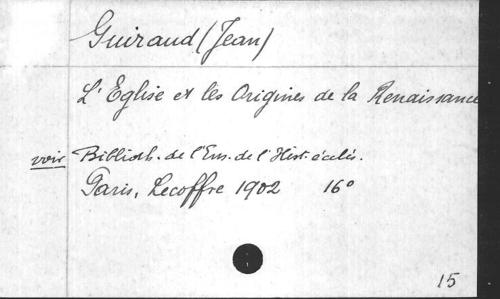 Guiraud (Jean)
L'Eglise et les Origines de la Renaissance
voir Biblioth. de l'Ens. de l'Hist. éclés.
Paris, Lecoffre 1902 16°
15